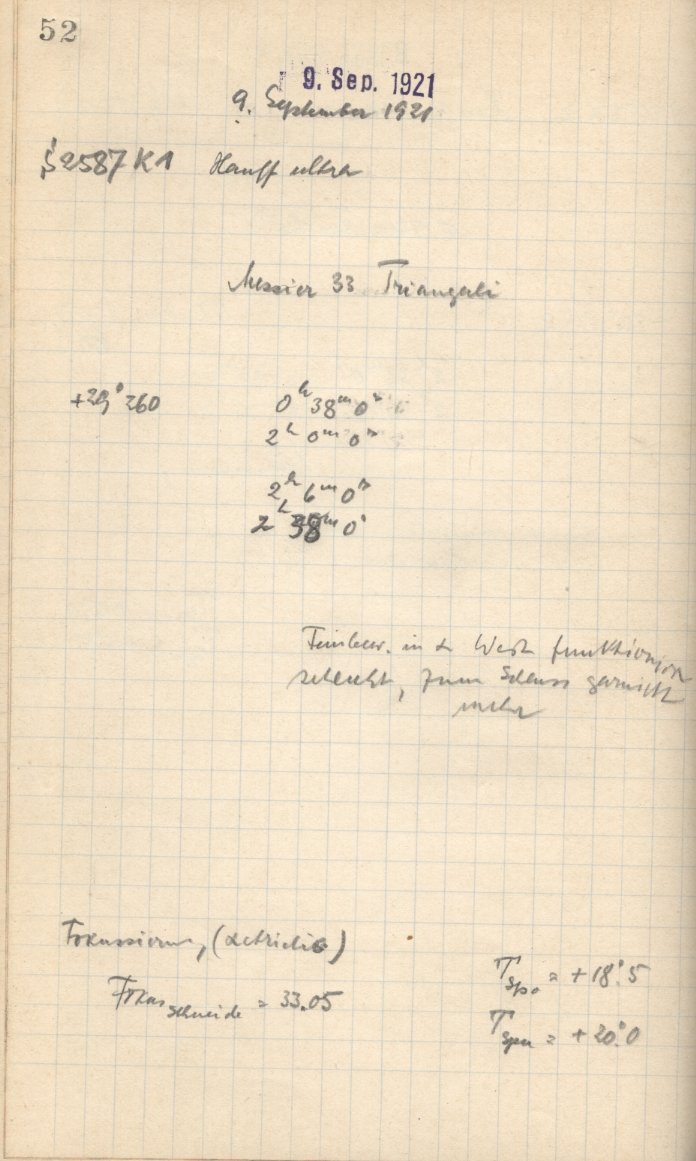 52
9. Sep. 1921
9. September 1921
S 2587 K1 Hauff ultra
Messier 33 Trianguli
+29° 260 0ʰ 38ᵐ 0ˢ
2ʰ 0ᵐ 0ˢ
2ʰ 6ᵐ 0ˢ
2ʰ 38ᵐ 0ˢ
Feinbew. in α West funktioniert
schlecht, zum Schluss garnicht
mehr
Fokussierung,
Fokus Schneide = 33.05
T Sp. = +18°.5
T Spu = +20°.0